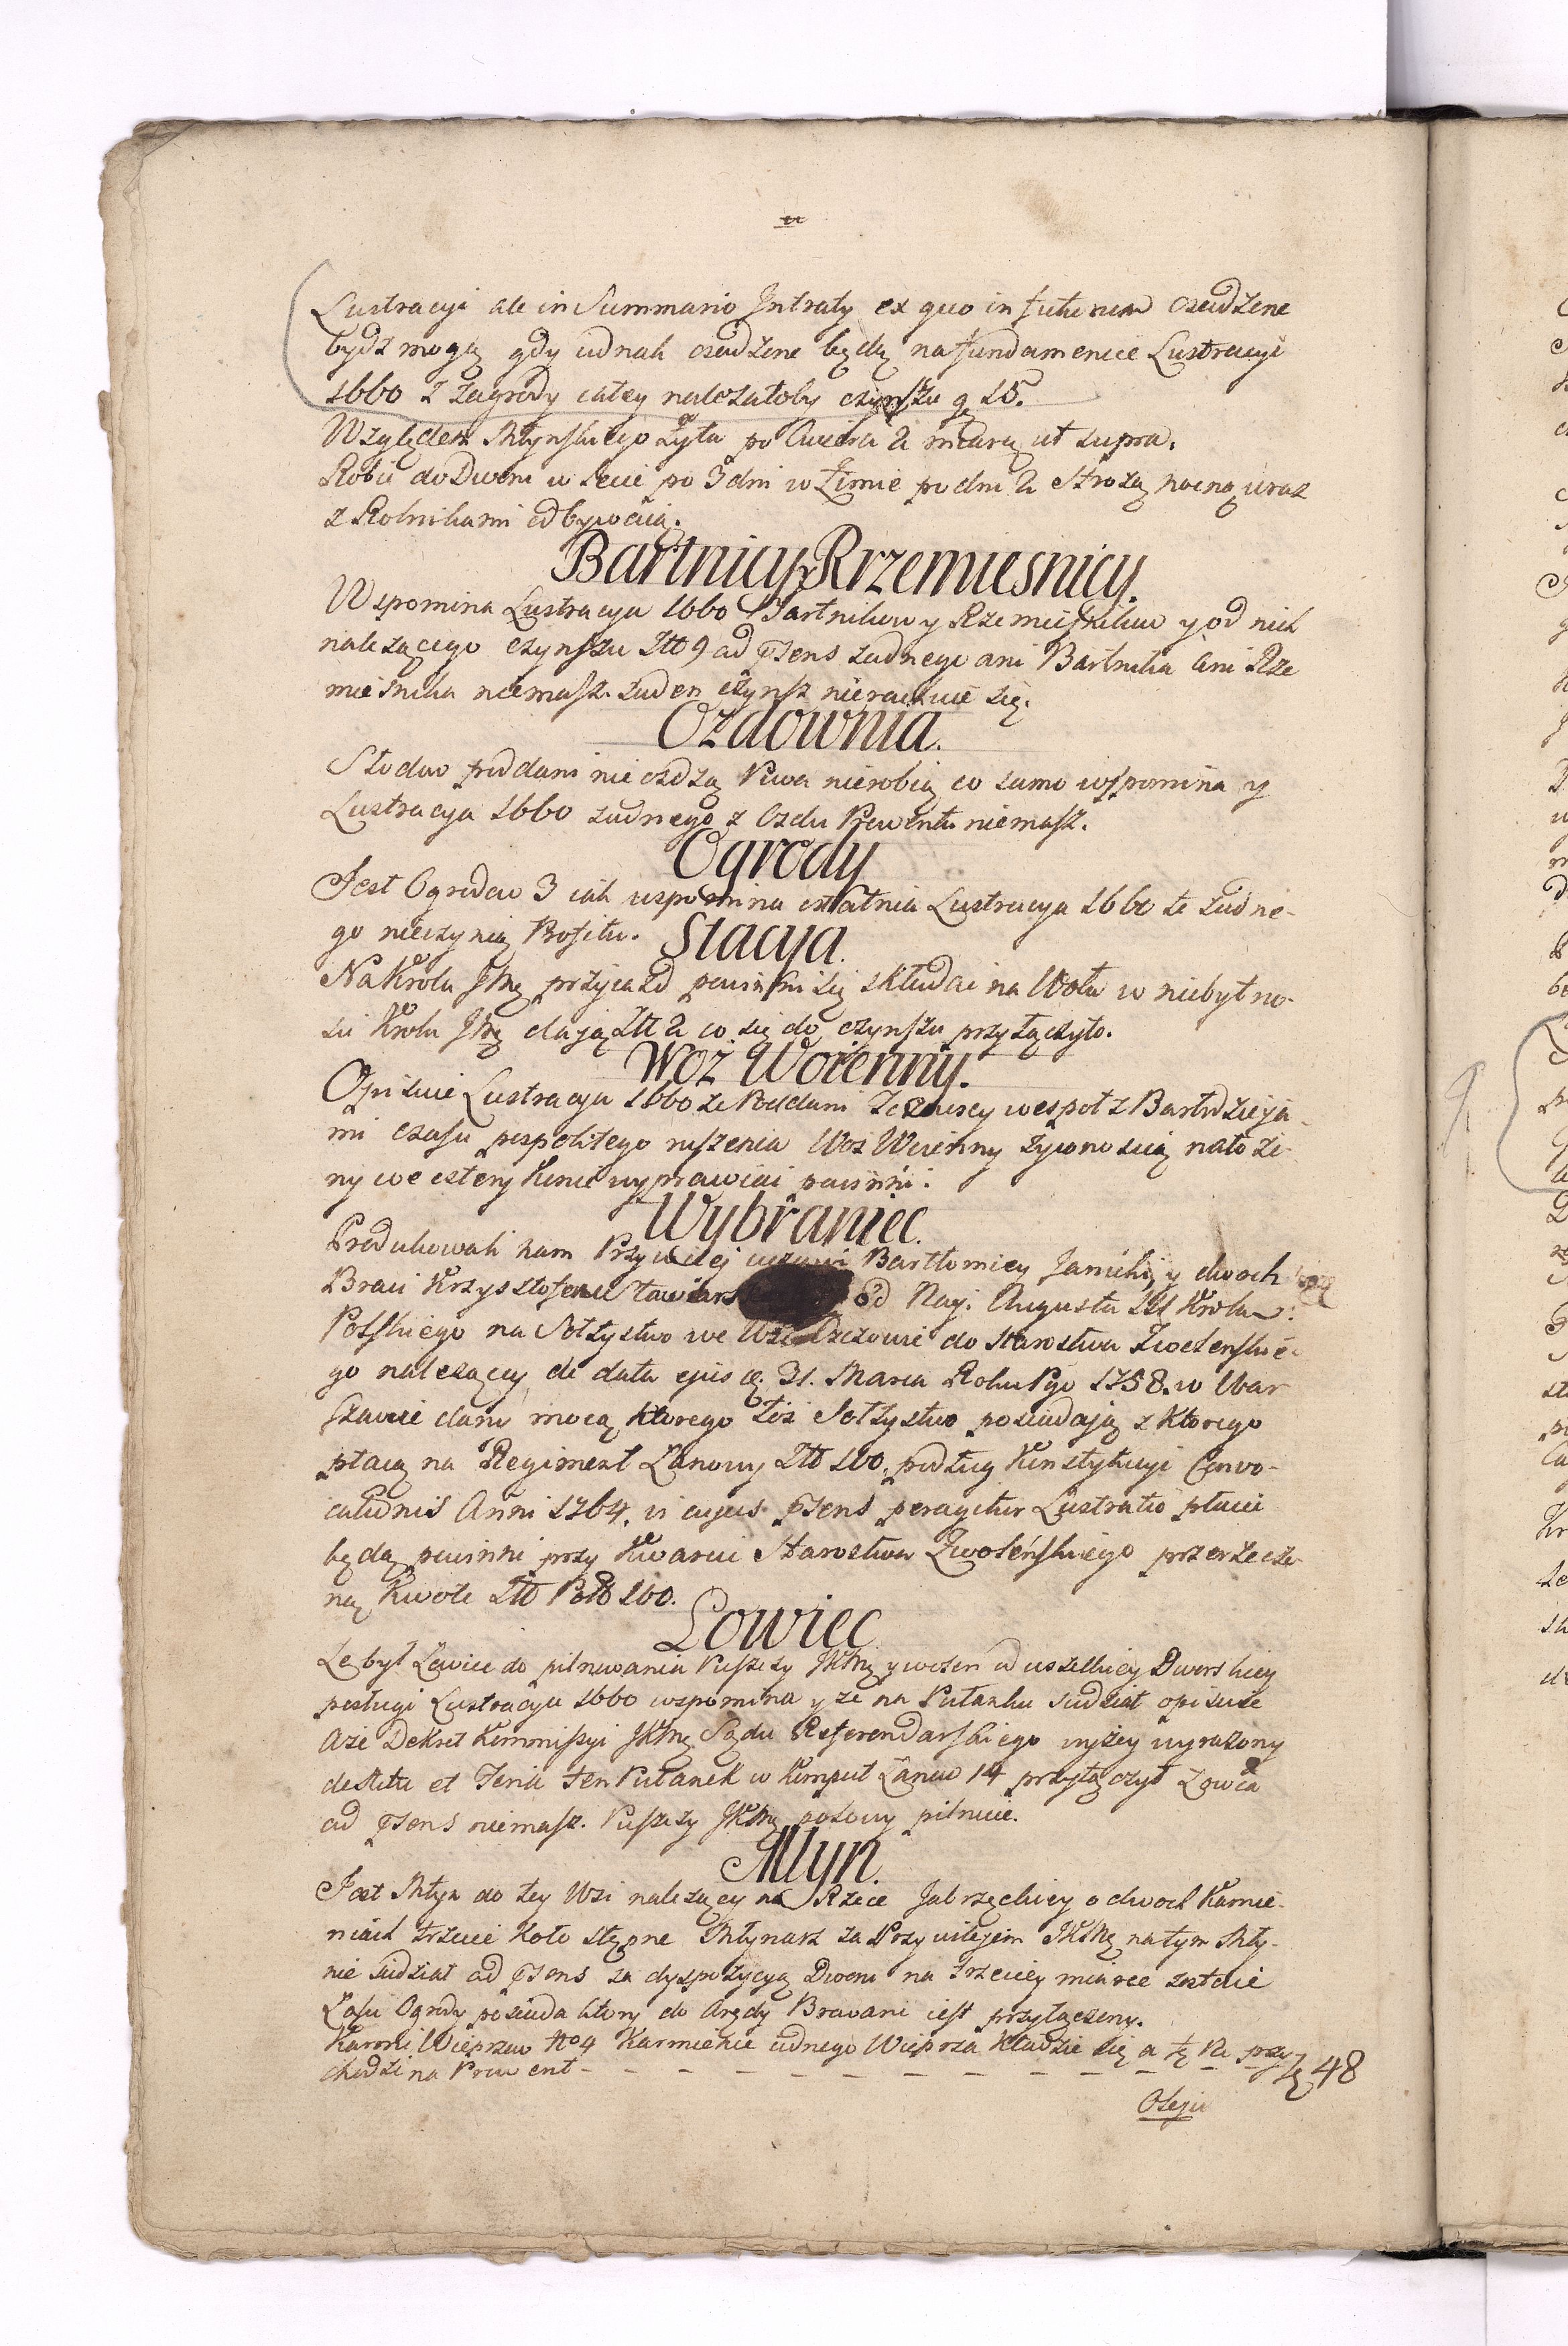 Lustracyi ale in Summario Jntraty ex quo in futurum osadzone
bydz mogą gdy iednak osadzone będą na fundamencie Lustracyi
1660 z zagrody całey należałoby czynszu g 15.
Względem Młynskiego Żyta po Cwierci 2 miary ut supra.
Robić do Dworu w Lecie po 3 dni w Zimie po dni 2 Strożą nocną wraz
z Rolnikami odbywaią.
Bartnicy y Rzemiesnicy.
Wspomina Lustracya 1660 Bartnikow y Rzemieslnikow y od nich
należącego czynszu Złł 9 ad psens żadnego ani Bartnika ani Rze
mieśnika niemasz. żaden czynsz nierachuie się.
Ozdownia.
Słodow poddani nie ozdzą Piwa nierobią co samo wspomina y
Lustracya 1660 żadnego z Ozdu Prowentu niemasz.
Ogrody
Jest Ogrodow 3 iak wspomina ostatnia Lustracya 1660 te żadne-
go nieczynią Profitu.
Stacya.
Na Krola JMę przyiazd powinni się składać na Wołu w niebytno-
sci Krola JMę daią Złł 2 co się do czynszu przyłączyło.
Woz Woienny.
Opisuie Lustracya 1660 ze Poddani wespoł z Bartodzieja
mi czasu pospolitego ruszenia Woz Woienny żywnoscią nałożo-
ny we cztery Konie wyprawiać powinni.
Wybraniec.
Produkowali nam Przywiley Bartłomiey y dwoch
Braci Krzysztofem od Nayj. Augusta III Krola
Polskiego na Sołtystwo we Wsi do Starostwa Zwolenskie-
go należący de data ejus 31. Marca Roku Pgo 1758. w War
szawie dany mocą ktorego też Sołtystwo posiadają z ktorego
płacą na Regiment Łanowy Złł 160. podług Konstytucyi Convo-
cationis Anni 1764. vi cujus psens peragitur Lustratio płacić
będą powinni przy Kwarcie Starostwa Zwoleńskiego przerzeczo-
ną Kwotę Złł Poll 160.
Łowiec
Ze był Łowiec do pilnowania Puszczy JKMę y wolen od wszelkiey Dworskiey
posługi Lustracya 1660 wspomina y ze na Pułanku siedział opisuie
Aże Dekret Kommissyi JKMę Sądu Referendarskiego wyżey wyrażony
de Actu et Feria ten Pułanek w Komput Łanow 14 przyłączył Łowca
ad psens niemasz. Puszczy JKMę pilnuie.
Młyn.
Jest Młyn do tey Wsi należący na Rzece o dwoch Kamie-
niach trzecie Koło stępne Młynarz za Przywilejem JKMę na tym Mły-
nie siedział ad psens za dyspozycyą Dworu na trzeciey miarce zostaie
Ogrody posiada ktory do Arędy Browaru iest przyłączony.
Karmi Wieprzow No 4 Karmienie iednego Wieprza kładzie się a 12 przy-
chodzi na Prowent - - - - - - - - - - 48
Oleju